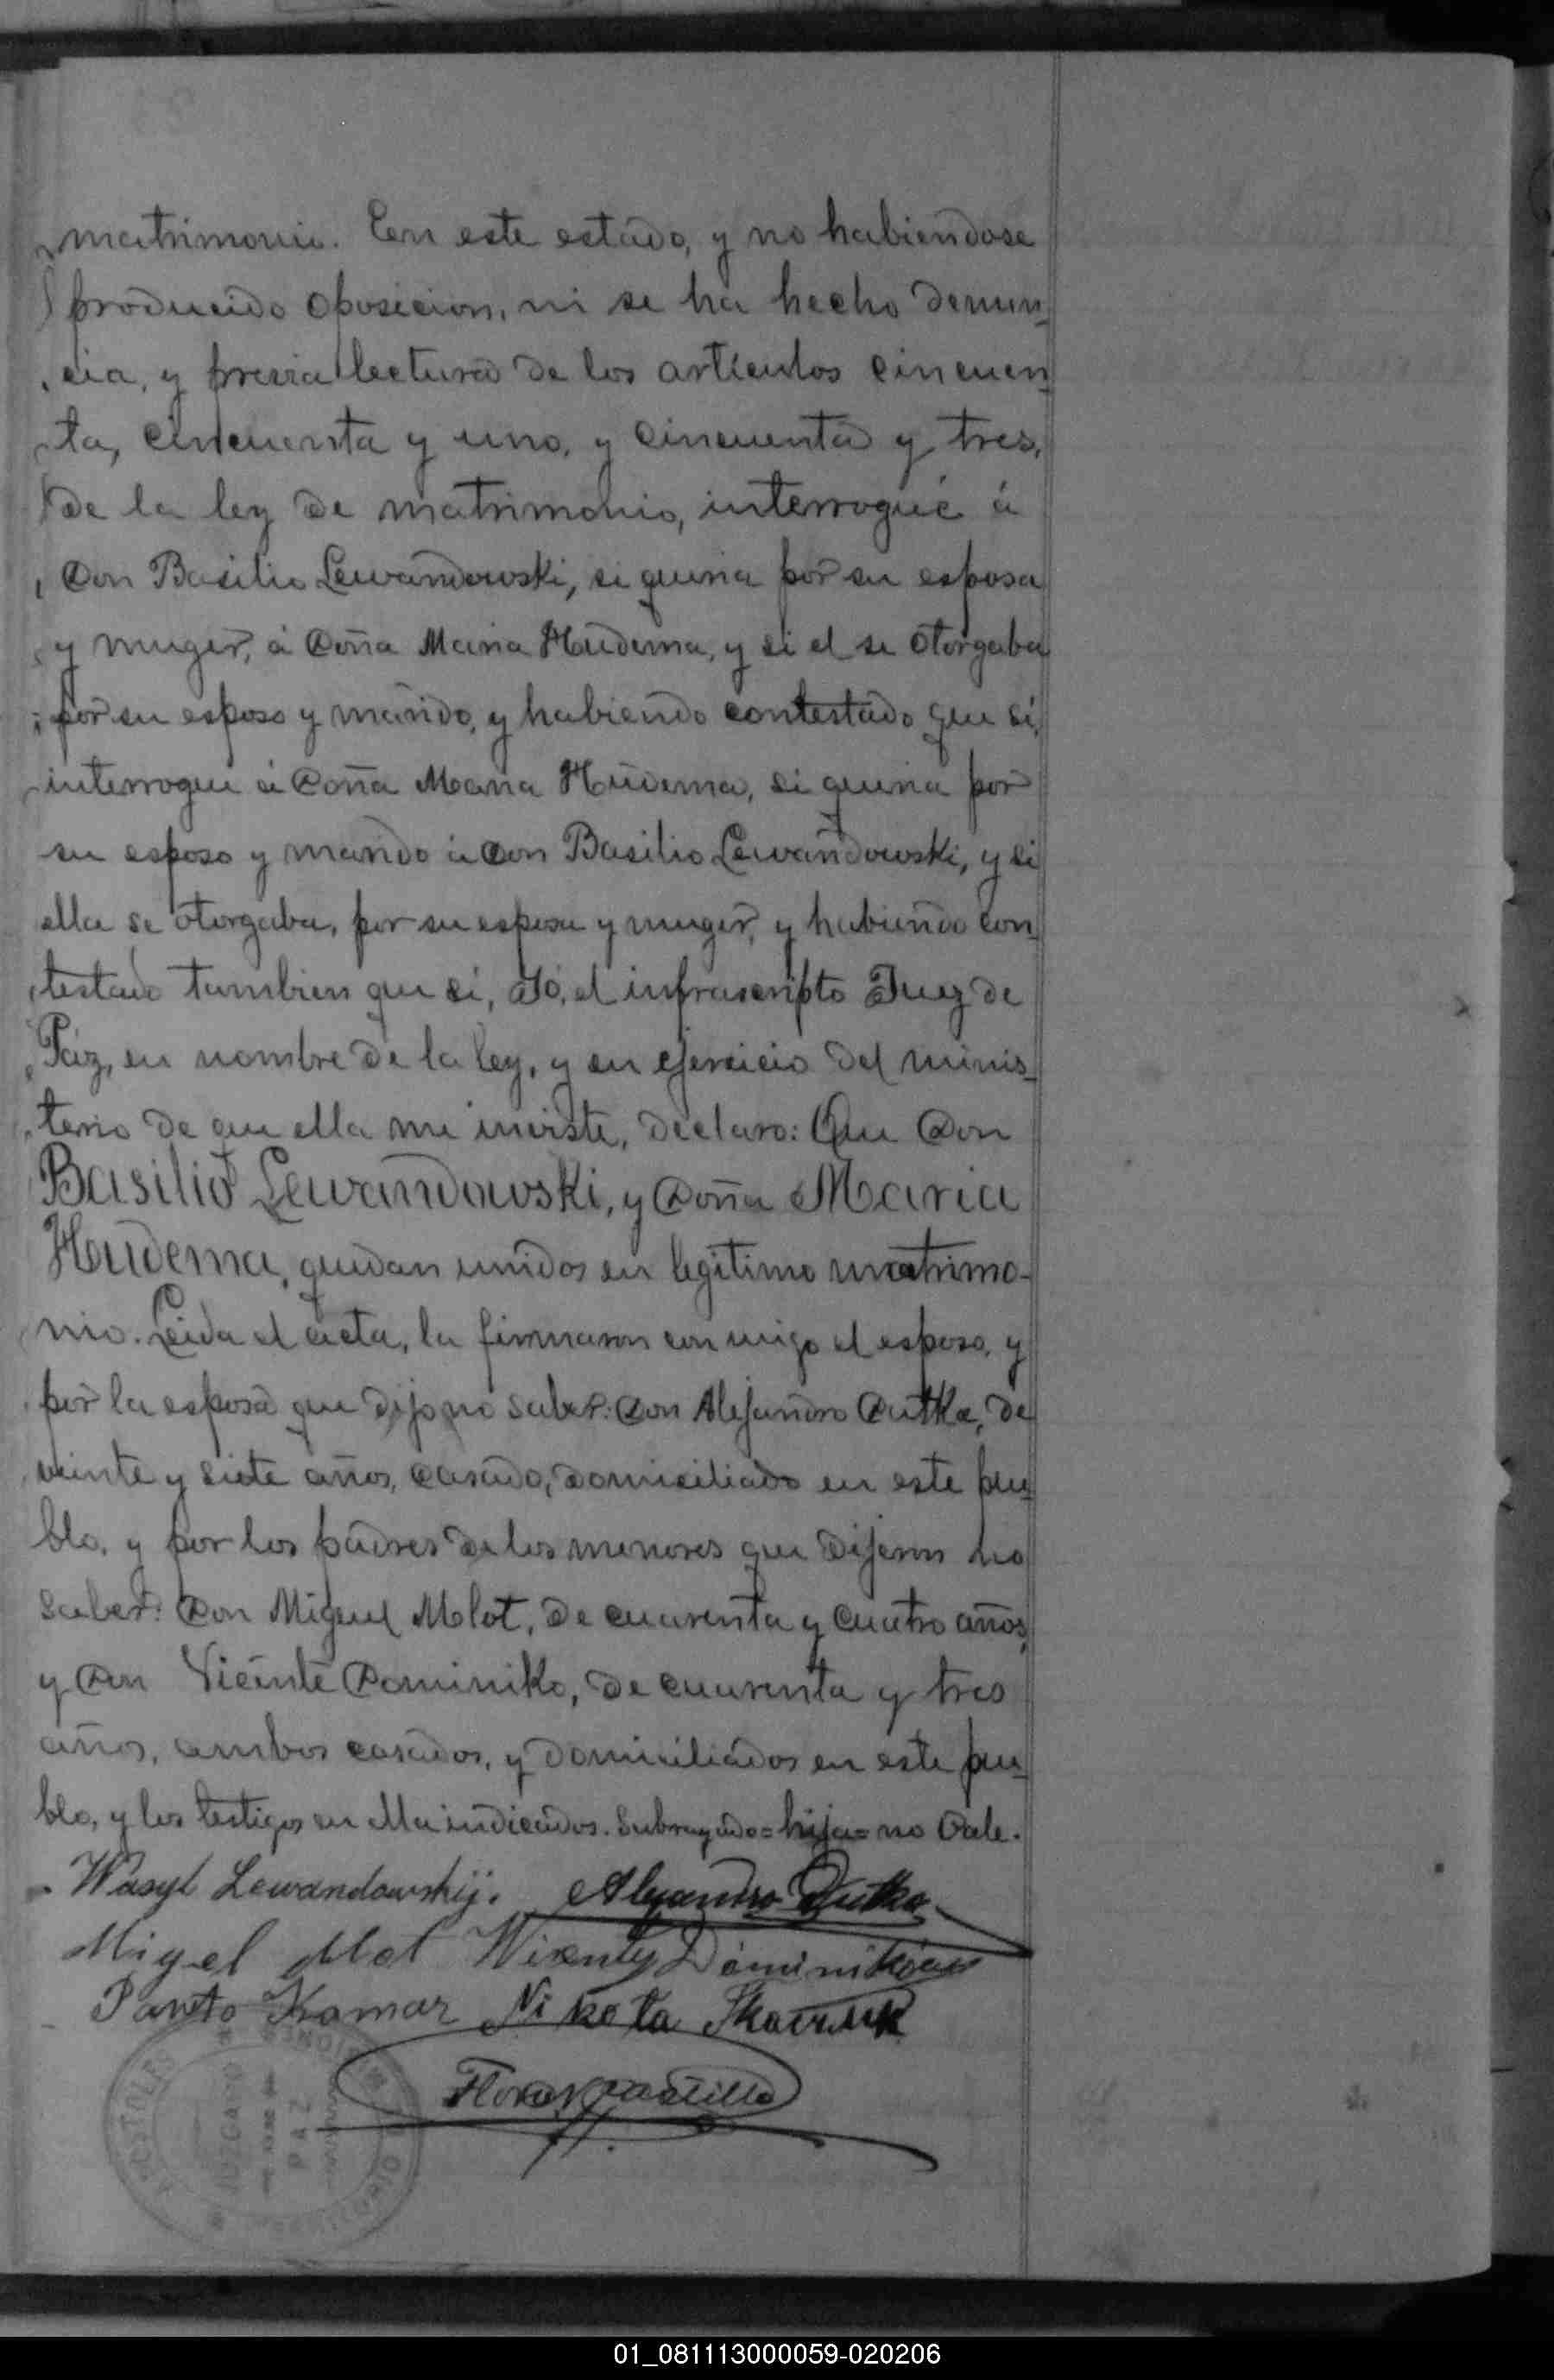 matrimonio. En este estado, y no habiendose
producido oposicion, ni se ha hecho denun-
cia, y previa lectura de los artículos cincuen-
ta, cincuenta y uno, y cincuenta y tres,
de la ley de matrimonio, interrogué á
Don Basilio Lewandowski, si queria por su esposa
y muger, á Doña Maria Hudema, y si el se otorgaba
por su esposo y marido, y habiendo contestado que sí,
interrogue á Doña Maria Hudema, si queria por
su esposo y marido á Don Basilio Lewandowski, y si
ella se otorgaba, por su esposa y muger, y habiendo con-
testado tambien que sí, Yó, el infrascripto Juez de
Páz, en nombre de la ley, y en ejersicio del minis-
terio de que ella me inviste, declaro: Que Don
Basilio Lewandowski, y Doña Maria
Hudema, quedan unidos en legitimo matrimo-
nio. Leida el acta, la firmaron con migo el esposo, y
por la esposa que dijo no saber: Don Alejandro Dutka, de
veinte y siete años, casado, domiciliado en este pue-
blo, y por los padres de los menores que dijeron no
saber: Don Miguel Molot, de cuarenta y cuatro años,
y Don Vicente Dominiko, de cuarenta y tres
años, ambos casados, y domiciliados en este pue-
blo, y los testigos en ella indicados. Subrayado = hija = no vale.
Wasyl Lewandowskij. Alejandro Dutka
Migel Wicenty
Komar Nikola
JUZGADO
DE
PAZ
APOSTOLES
01_081113000059-020206